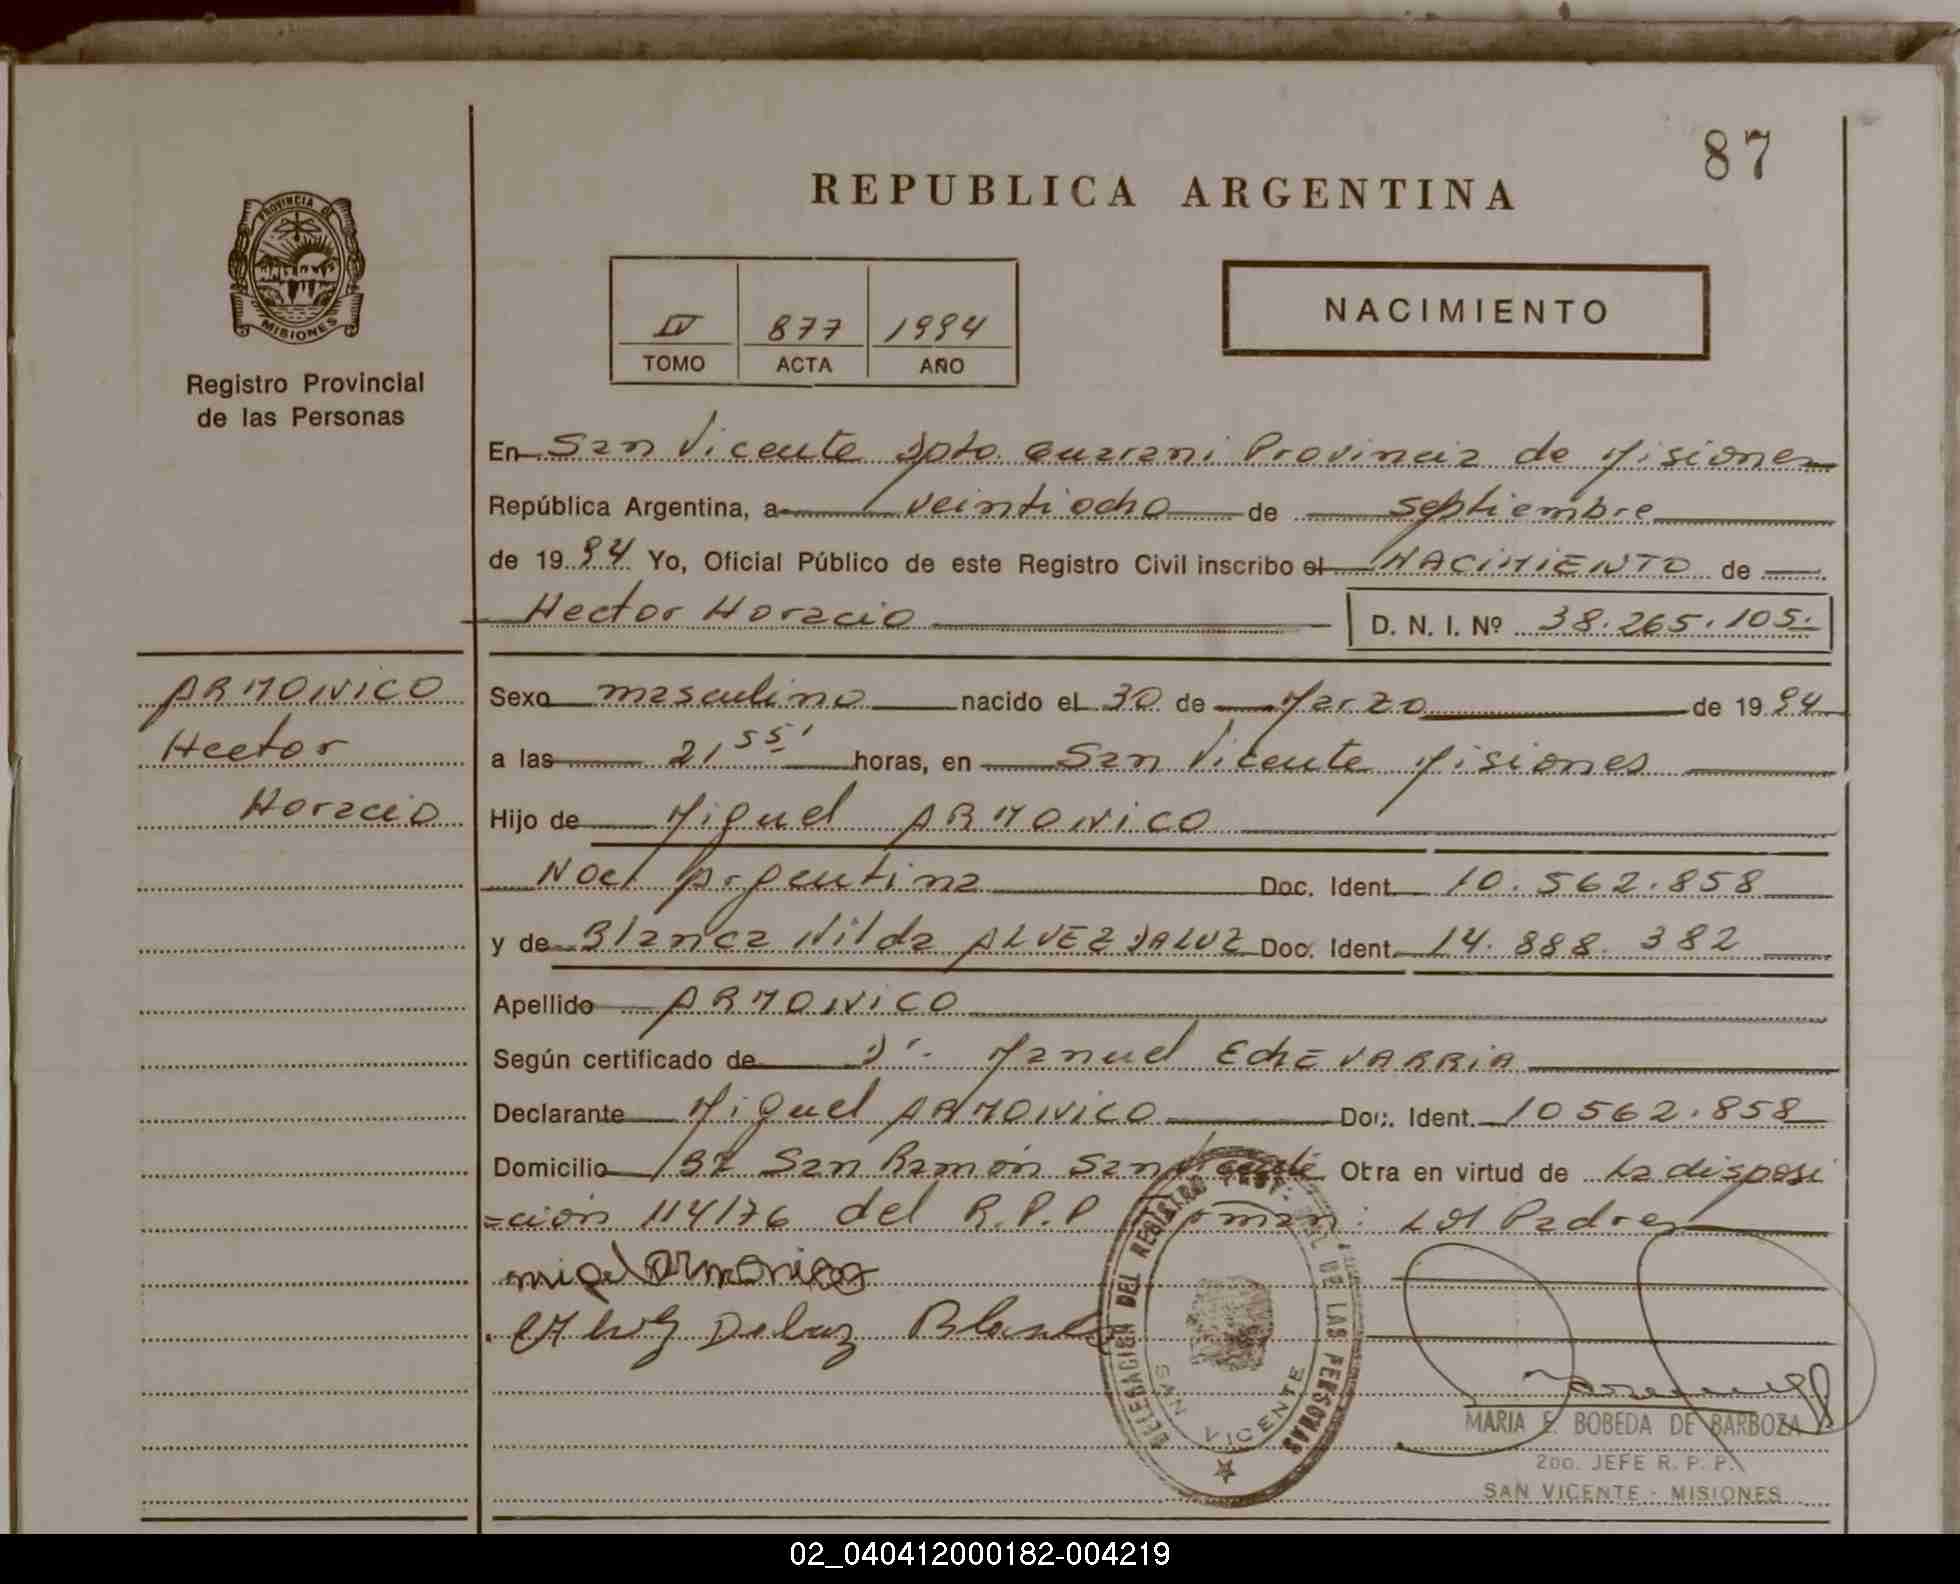 87
REPUBLICA ARGENTINA
PROVINCIA DE
MISIONES
Registro Provincial
de las Personas
IV 877 1994
TOMO ACTA AÑO
NACIMIENTO
En San Vicente Dpto. Guarani Provincia de Misiones
República Argentina, a veintiocho de septiembre
de 1994 Yo, Oficial Público de este Registro Civil inscribo el NACIMIENTO de
Hector Horacio D. N. I. Nº 38.265.105.
ARMONICO
Hector
Horacio
Sexo masculino nacido el 30 de Marzo de 1994
a las 21,55' horas, en San Vicente Misiones
Hijo de Miguel ARMONICO
Nac. Argentina Doc. Ident. 10.562.858
y de Blanca Nilda ALVEZ DALUZ Doc. Ident. 14.888.382
Apellido ARMONICO
Según certificado de Dr. Manuel EchEVARRIA
Declarante Miguel ARMONICO Doc. Ident. 10562.858
Domicilio San Ramón San Vicente Otra en virtud de La disposi
=ción 114/76 del R.P.P Los Padres
miguel armonico
Deluz Blanca
DELEGACION DEL REGISTRO DE LAS PERSONAS
SAN VICENTE
MARIA E. BOBEDA DE BARBOZA
2do. JEFE R. P. P.
SAN VICENTE - MISIONES
02_040412000182-004219